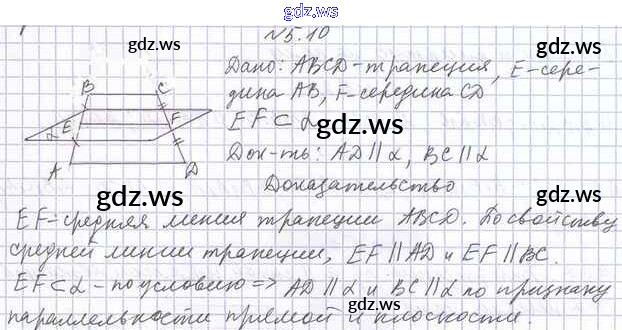 gdz.ws
№5.10
gdz.ws gdz.ws
Дано: ABCD-трапеция, E-сере-
дина AB, F-середина CD
EF⊂α gdz.ws
Док-ть: AD∥α, BC∥α
Доказательство
B C
E F
α
A D
gdz.ws gdz.ws
EF-средняя линия трапеции ABCD. По свойству
средней линии трапеции, EF∥AD и EF∥BC.
gdz.ws
EF⊂α-по условию=> AD∥α и BC∥α по признаку
параллельности прямой и плоскости.
gdz.ws gdz.ws
gdz.ws